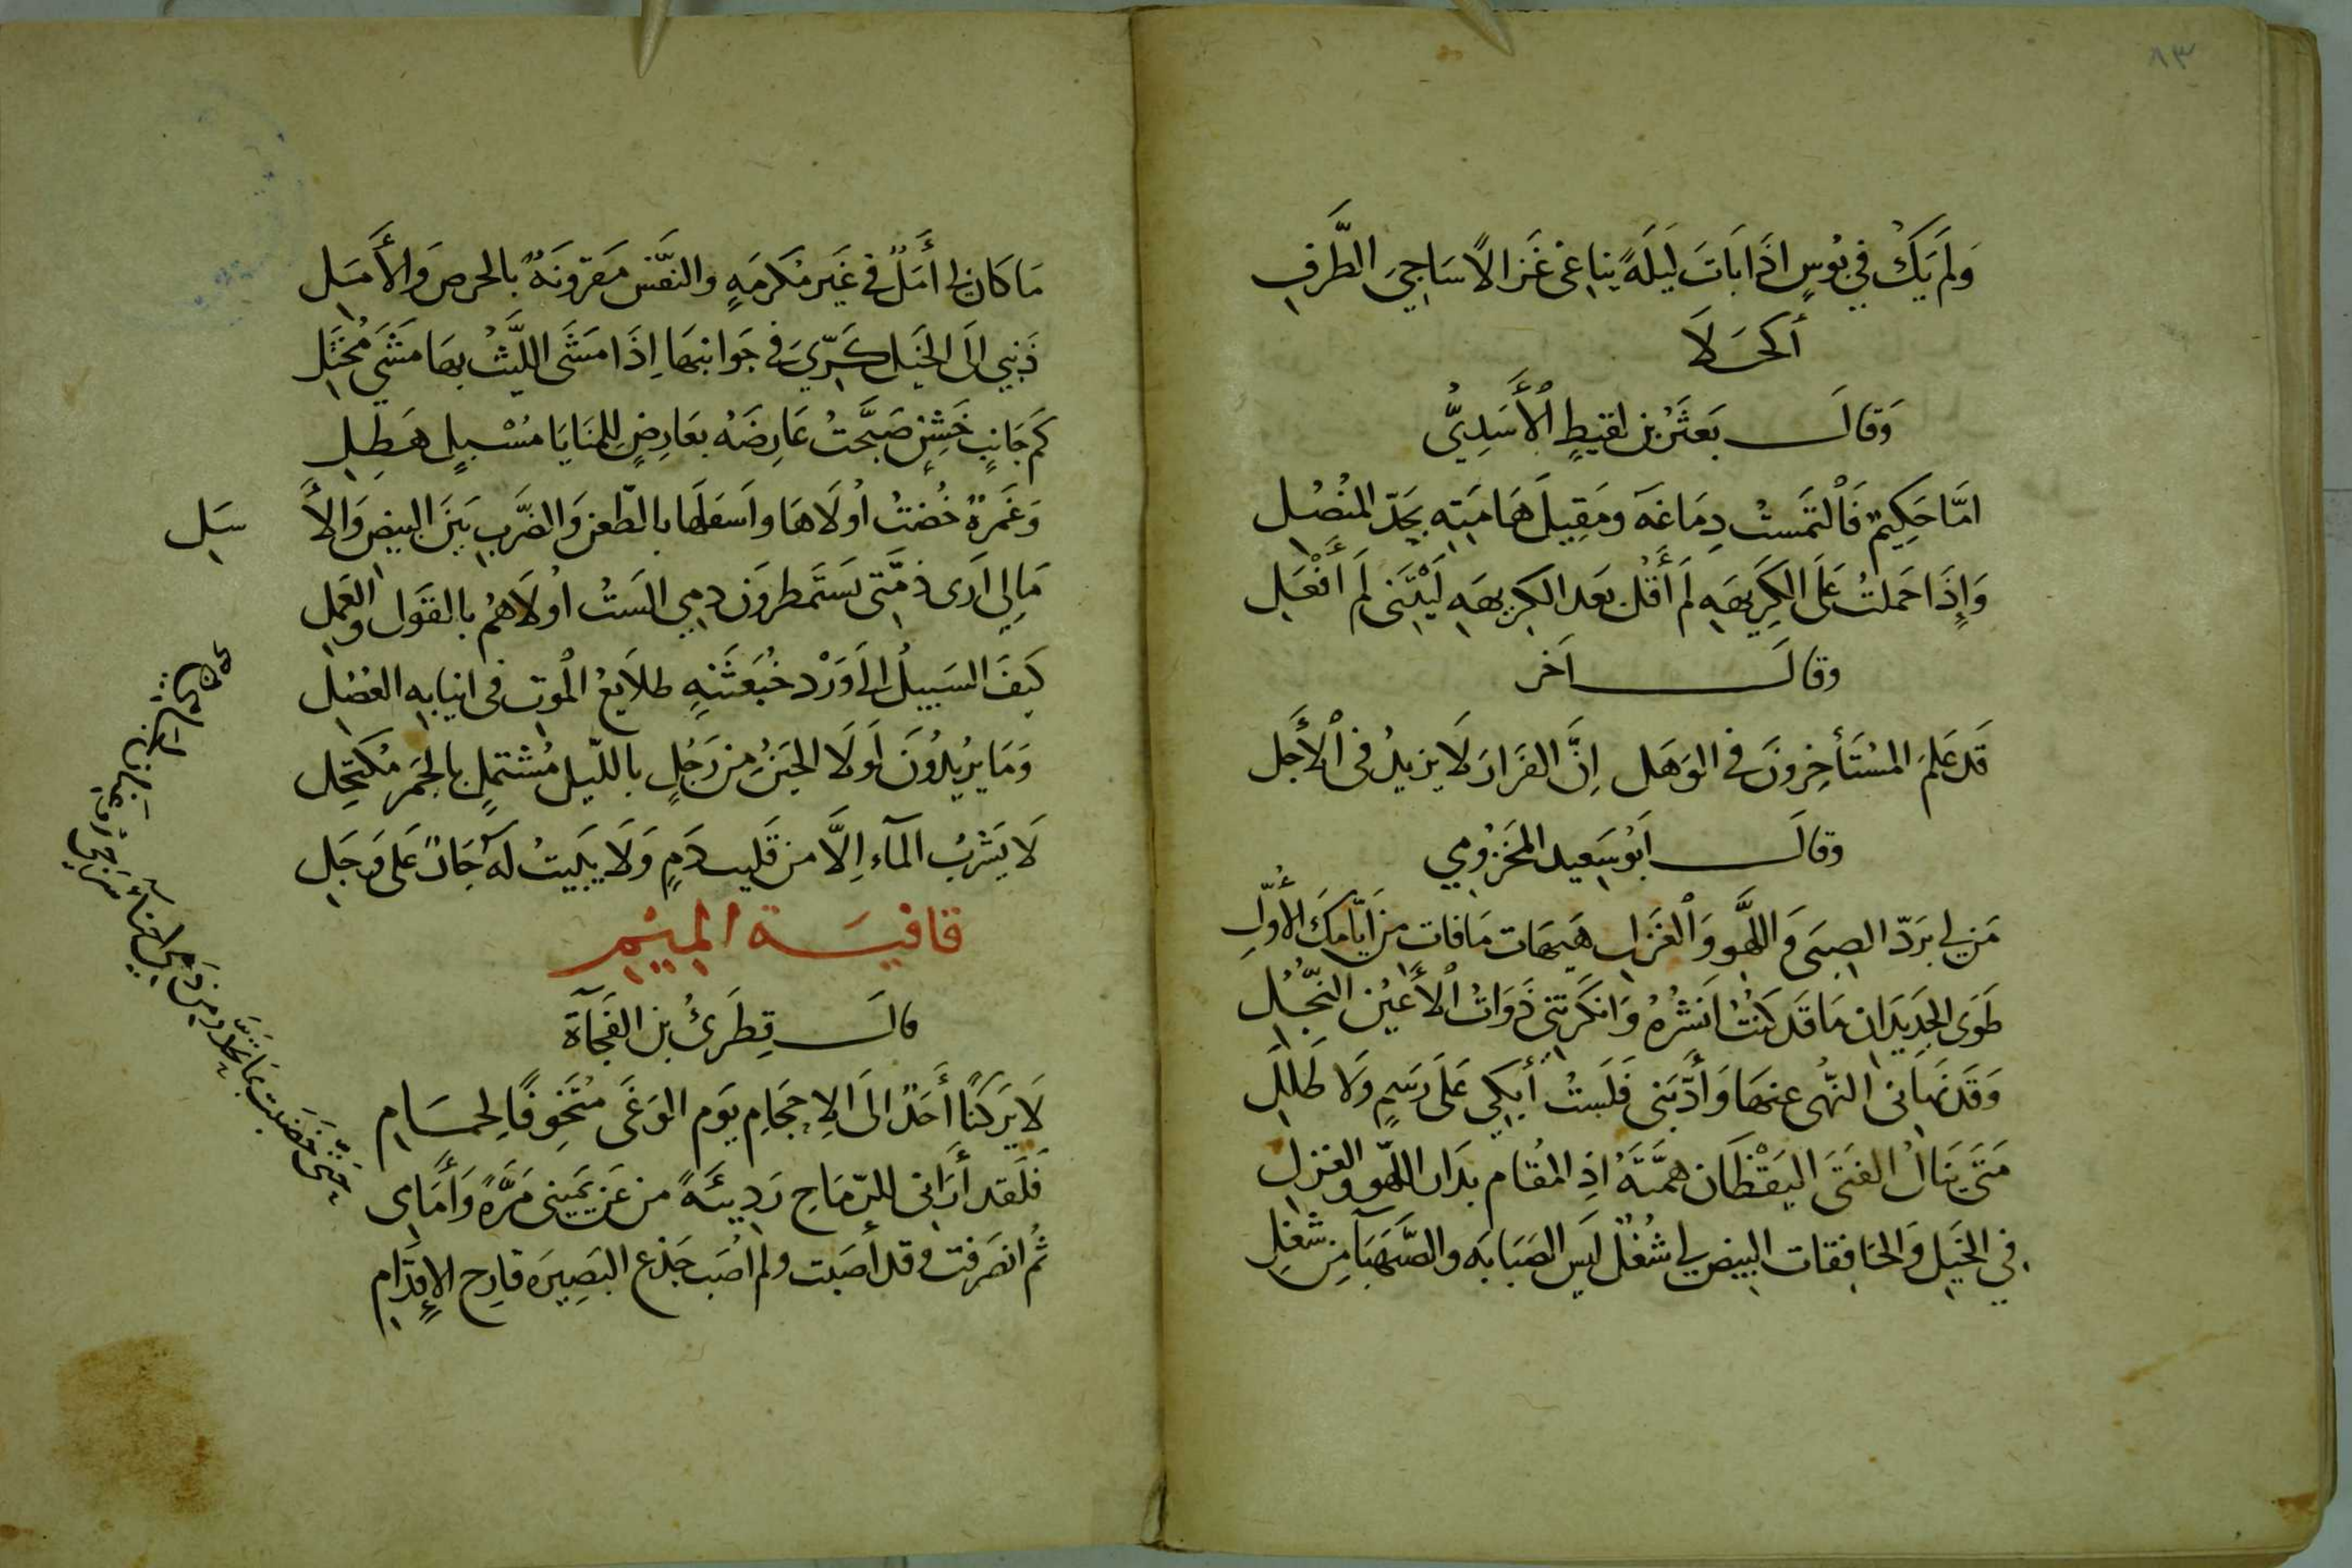 ٨٣
وَلَم يَكُ فِي بُوسٍ اذَا بَاتَ لَيلَةً يناغى غَزالاً سَاجِيَ الطَّرفِ
أكحَلَا
وَقالَ بَعثَرُ بن لقيطٍ الْأَسَدِيُّ
امَّا حَكِيمٌ فَالْتَمستُ دِمَاغَه ومَقِيلَ هَامَتِه بحَدّ المنْصُل
وَإِذَا حَملتُ عَلَى الكَرِيهَه لَم أَقُل بَعد الكريهَه لَيْتَنى لَم أَفْعَل
وقالَ اَخر
قَد عَلمَ المُسْتَأخِرونَ في الوَهَل اِنَّ الفرَارَ لَا يزيدُ فى الْأَجَل
وقالَ اَبُو سَعيد المَخزُومي
مَن لي بردّ الصبَى وَاللَّهو وَالْغَزلِ هيهَات مَا فات من اَيّامكَ الْأُوَلِ
طَوَى الجَدِيدَان مَا قَد كنتُ اَنشُرُهُ وَانكَرتنى ذَوَاتُ الْأَعيُن النُّجُلِ
وَقَد نَهَانى النُّهى عنهَا وَأدَّبَنى فَلَستُ أبكي عَلَى رَسمٍ وَلَا طَلَلِ
مَتَى يَنَالُ الفَتَى اليَقْظَان همَّتَهُ اذِ المقَام بدَار اللّهو والغزل
في الخَيلِ وَالخافقات البيض لي شُغُلٌ لَيس الصَبَابَه والصَّهبَآ مِن شغلِ
مَا كان لى أَمَلٌ في غَير مَكرمَهٍ والنفسُ مَقرُونَةٌ بالحرصِ وَالأَمَل
ذَنبي اِلَى الخَيل كَرّىَ في جَوانبهَا اِذَا مَشَى اللَّيثُ بهَا مَشيَ مُختَل
كَم جَانِبٍ خَشِنٍ صَبَّحتُ عَارِضَهُ بعَارِضٍ لِلمنَايَا مُسْبِلٍ هَطِلِ
وَغَمرَةٌ خُضتُ اُولَاهَا واَسفلَهَا بالطّعن وَالضَّربِ بَينَ البيض وَالأَ سَل
مَا لِي اَرَى ذمَّتى يَستَمطرونَ دمِي اَلَستُ اُولَاهُم بالقَول والعَمل
كَيفَ السَبيلُ اِلَى وَرْد خُبَعثَنَهٍ طلاَيعُ الموت فى انيَابه العُضُل
وَمَا يُريدُونَ لَولَا الحَينُ من رَجُلٍ باللّيل مُشتملٍ بالجَمر مُكتَحِل
لَا يَشربُ المآء اِلَّا من قَليب دَمٍ وَلَا يَبيتُ لَهُ جَارٌ عَلى وَجَل
قافيَة الميم
قالَ قِطَرِىُّ بن الفُجَآة
لَا يَركَنَنْ أحَدٌ اِلَى الاِحجَامِ يَوم الوَغَى مُتَخوِّفًا لِحمَامِ
فَلَقد أَرَانى للرّمَاحِ رَدِيئَةً من عَن يَمينى مَرَّةً وَأَمَامى
حَتَّى خَضَبتُ بمَا تحَدَّرَ من دَمي اَحنَآء سَرجى اَو عِنانَ لجامي صح
ثُم انصَرفت وقد أصَبت ولَم اُصَب جَذع البَصِيرَه قارِح الاِقدَامِ